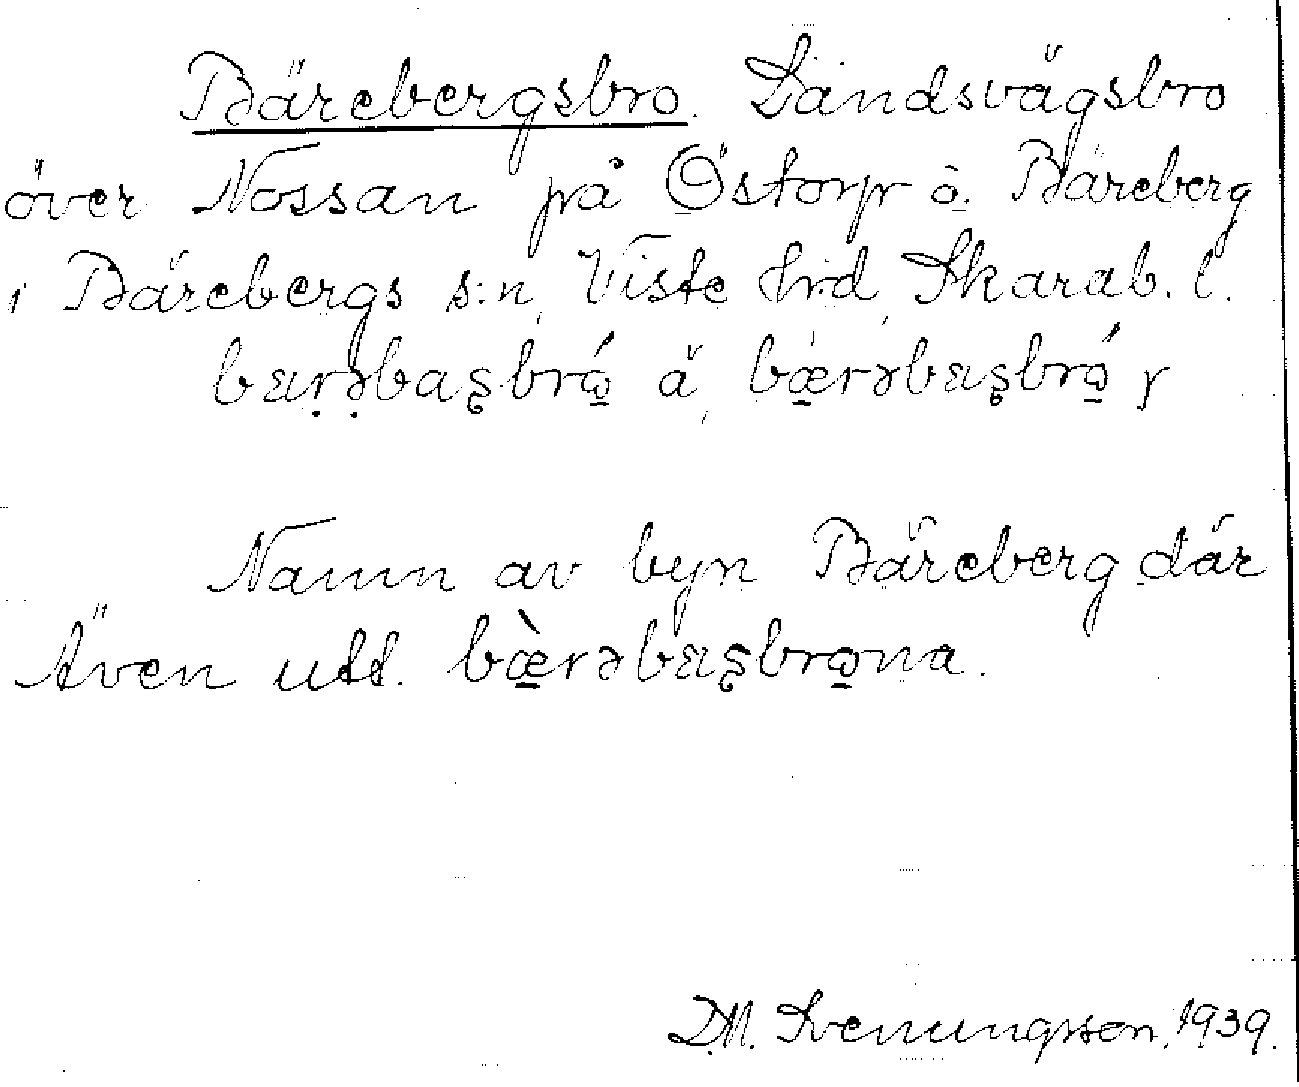 Bärebergsbro. Landsvägsbro
över Nossan på Östorp o. Bäreberg
i Bärebergs s:n, Viste hrd, Skarab. l.
bærəbaʂbró̱ å, bæ̱rəbaʂbró̱ r
Namn av byn Bäreberg där
Även utt. bæ̱̀rəbaʂbro̱na.
D.M. Svenungsson, 1939.